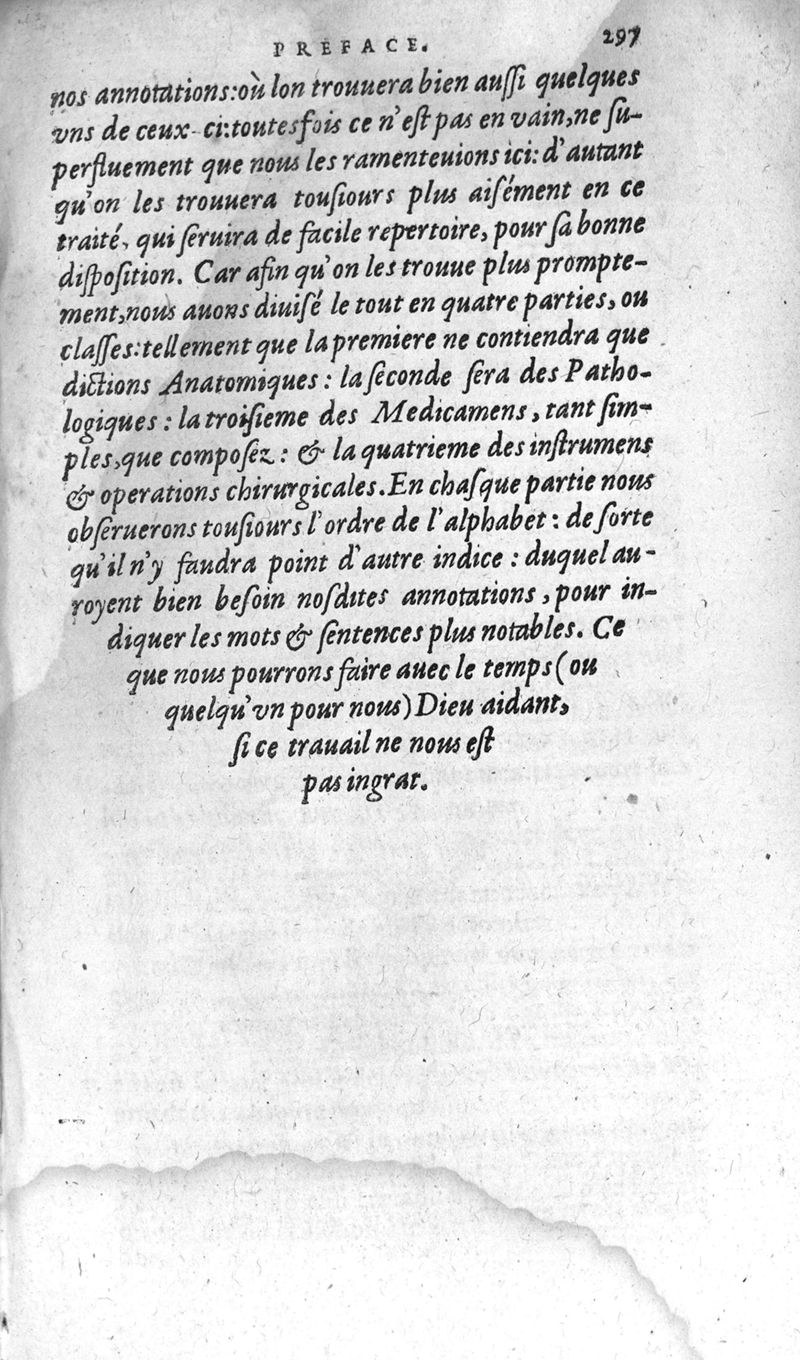 PREFACE. 297
nos annotations:où lon trouuera bien auſſi quelques
vns de ceux-ci:toutesfois ce n'eſt pas en vain,ne ſu-
perfluement que nous les ramenteuions ici: d'autant
qu'on les trouuera touſiours plus aiſément en ce
traité, qui ſeruira de facile repertoire, pour ſa bonne
diſpoſition. Car afin qu'on les trouue plus prompte-
ment,nous auons diuiſé le tout en quatre parties, ou
claſſes:tellement que la premiere ne contiendra que
dictions Anatomiques : la ſeconde ſera des Patho-
logiques : la troiſieme des Medicamens, tant ſim-
ples,que compoſez : & la quatrieme des inſtrumens
& operations chirurgicales. En chaſque partie nous
obſeruerons touſiours l'ordre de l'alphabet : de ſorte
qu'il n'y faudra point d'autre indice : duquel au-
royent bien beſoin noſdites annotations, pour in-
diquer les mots & ſentences plus notables. Ce
que nous pourrons faire auec le temps (ou
quelqu'vn pour nous) Dieu aidant,
ſi ce trauail ne nous eſt
pas ingrat.